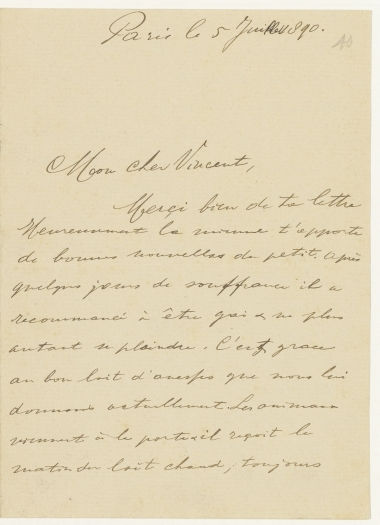 Paris le 5 Juillet 1890.
Mon cher Vincent,
Merci bien de ta lettre
Heureusement la mienne t'apporte
de bonnes nouvelles du petit. Après
quelques jours de souffrance il a
recommencé à être gai & ne plus
autant se plaindre. C'est grace
au bon lait d'anesse que nous lui
donnons actuellement. Les animaux
viennent à la porte & il reçoit le
matin du lait chaud, toujours